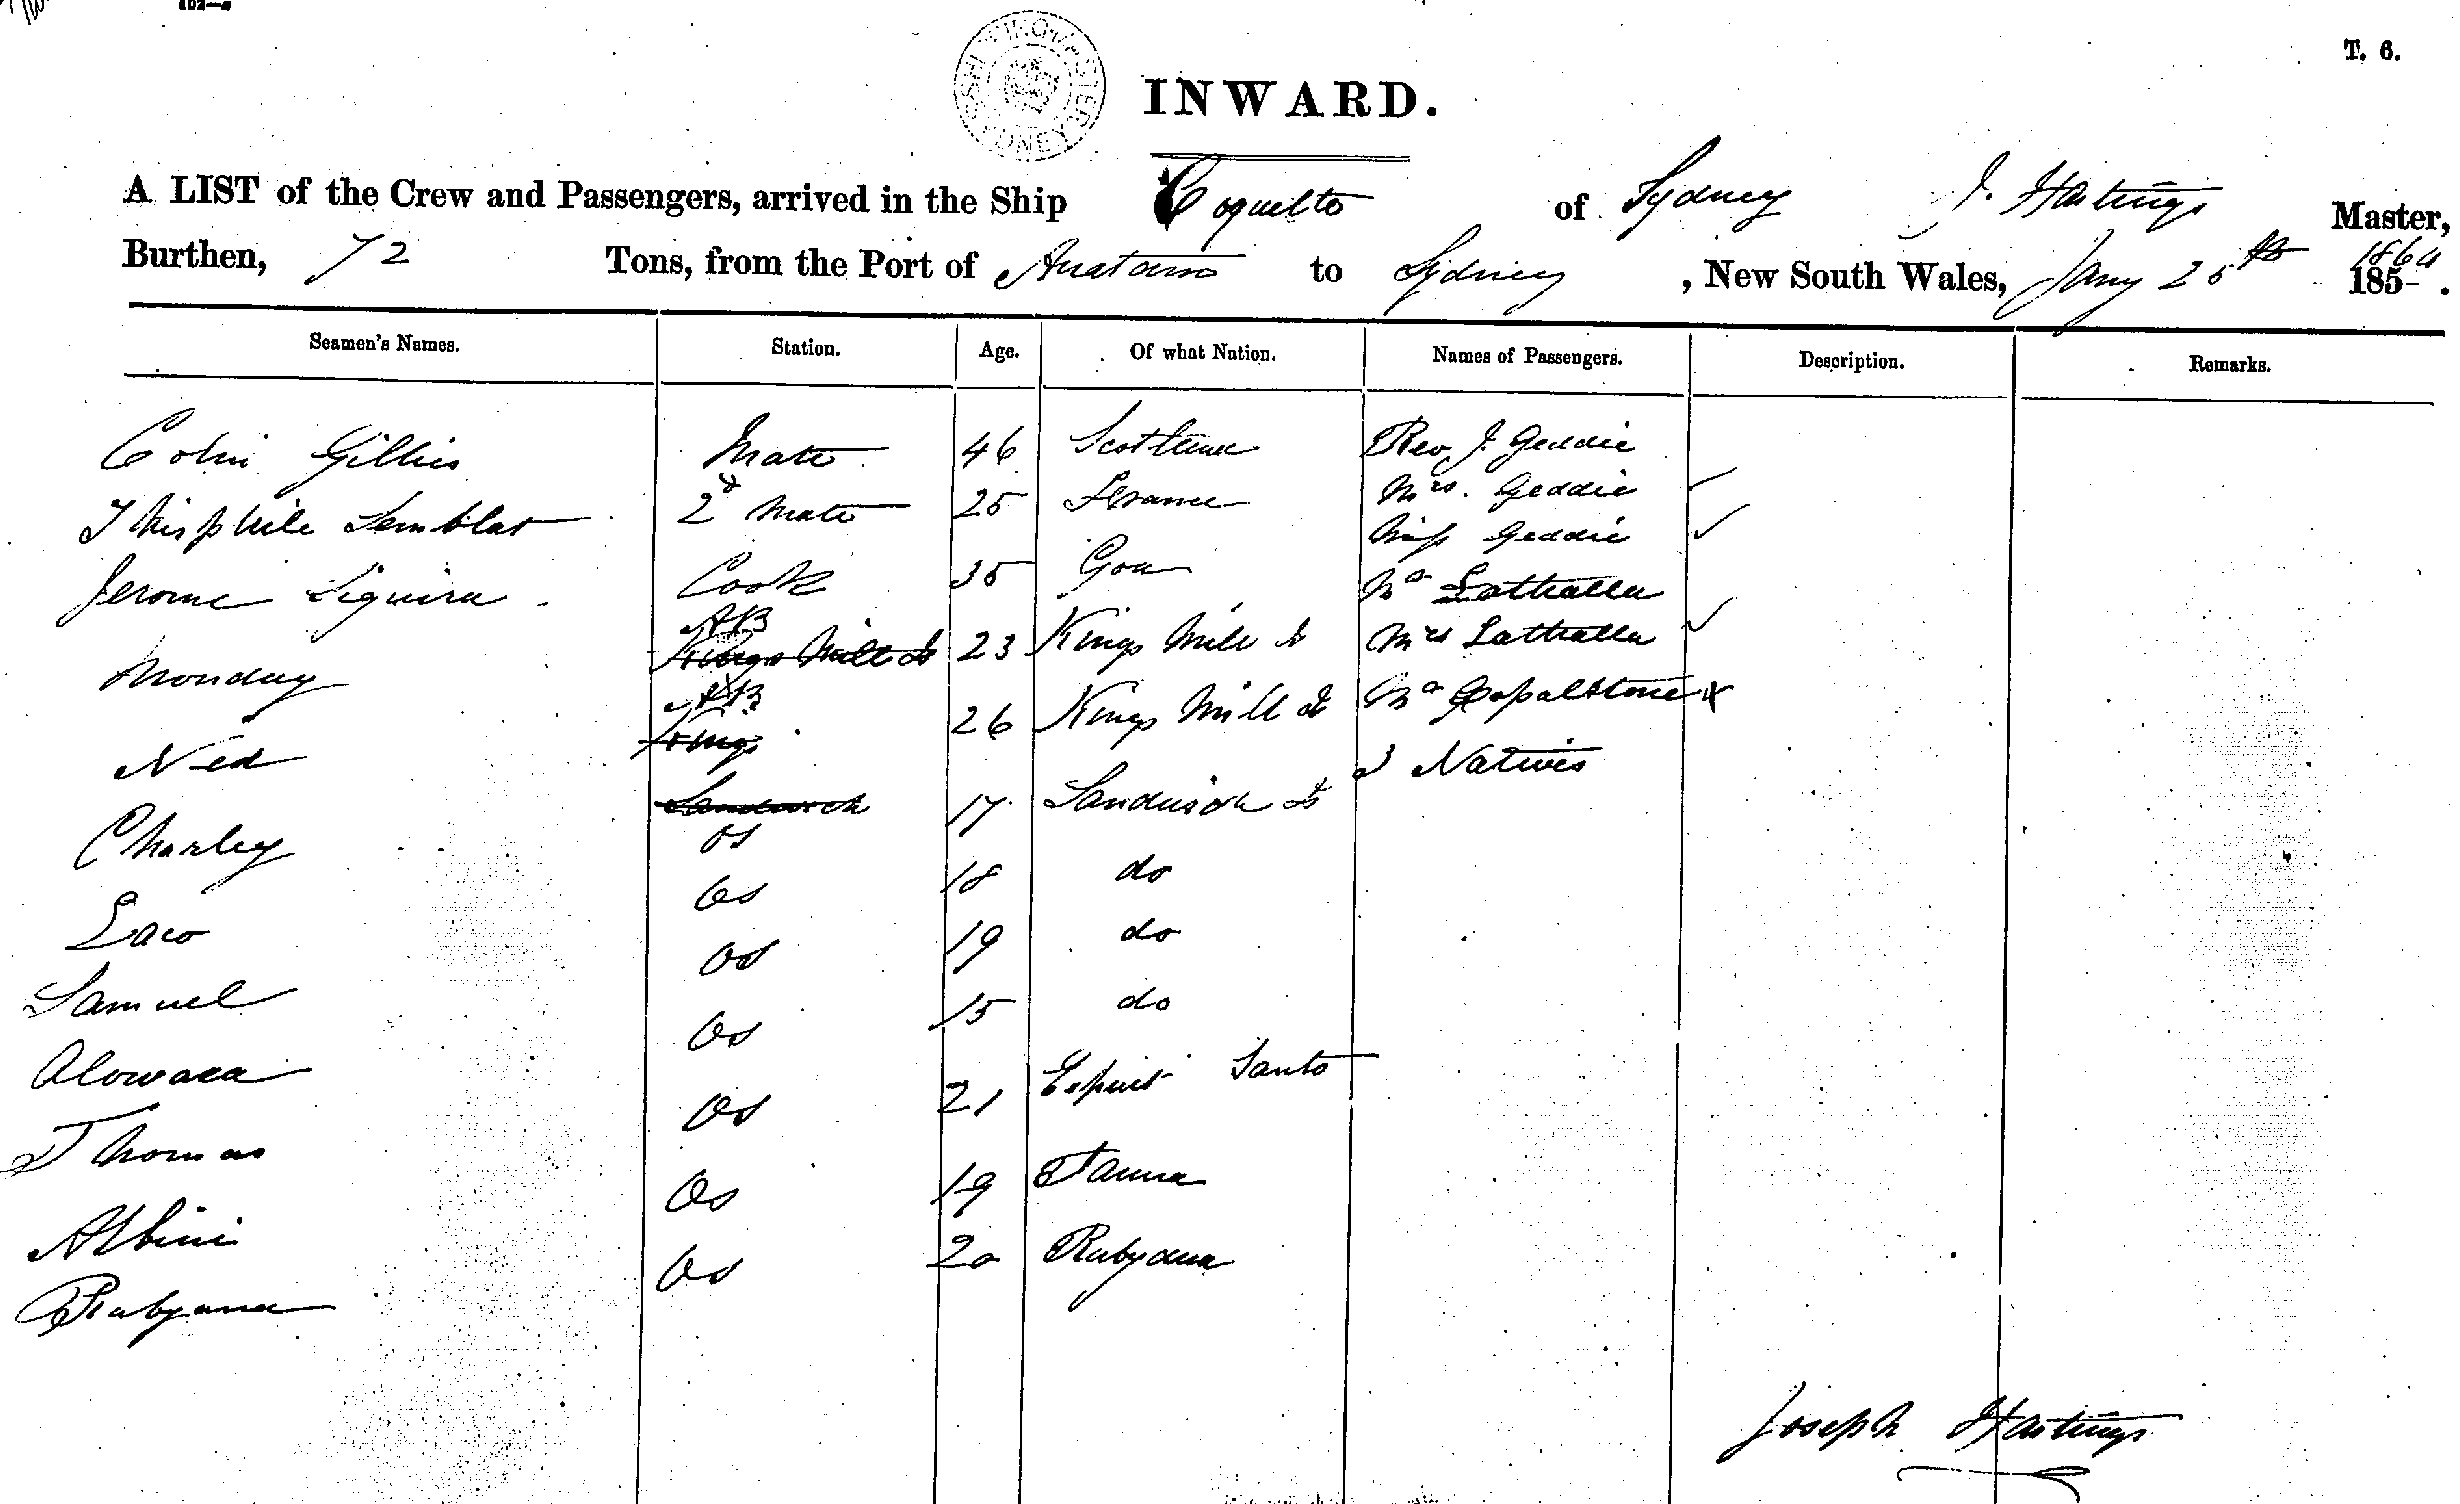 T. 6.
INWARD.
A LIST of the Crew and Passengers, arrived in the Ship Coquette of Sydney J. Hastings Master,
Burthen, 72 Tons, from the Port of to Sydney, New South Wales, Jany 25th 1864 185-.
Seamen's Names. Station. Age. Of what Nation. Names of Passengers. Description. Remarks.
Colin Gillies Mate 46 Scotland Rev J. Geddie
Mrs. Geddie
2d Mate 25 France
Miss Geddie
Jerome Siguira Cook 35 Goa
Mr Lathalla
Monday AB Kings Mill Is 23 Kings Mill Is Mrs Lathalla
Ned AB Kings 26 Kings Mill Is Mr Copalstone
3 Natives
Charley Sandwich OS 17 Sandwich Is
Laco OS 18 do
Samuel OS 19 do
OS 15 do
Thomas OS 21 Espirit Santo
OS 19 Tanna
Rubyana OS 20 Rubyana
Joseph Hastings